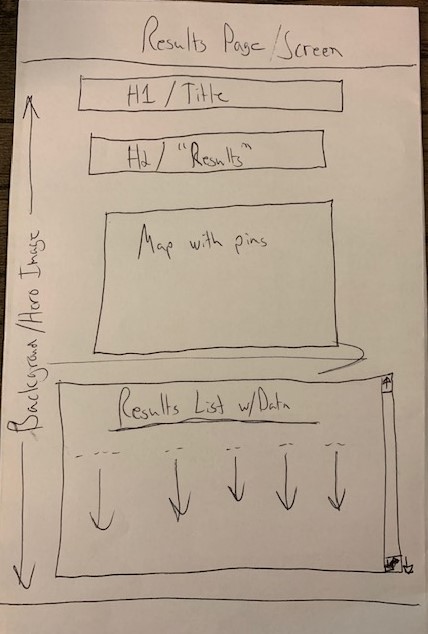 Results Page/Screen
H1 / Title
H2 / "Results"
Map with pins
Background/Hero Image
Results List w/Data